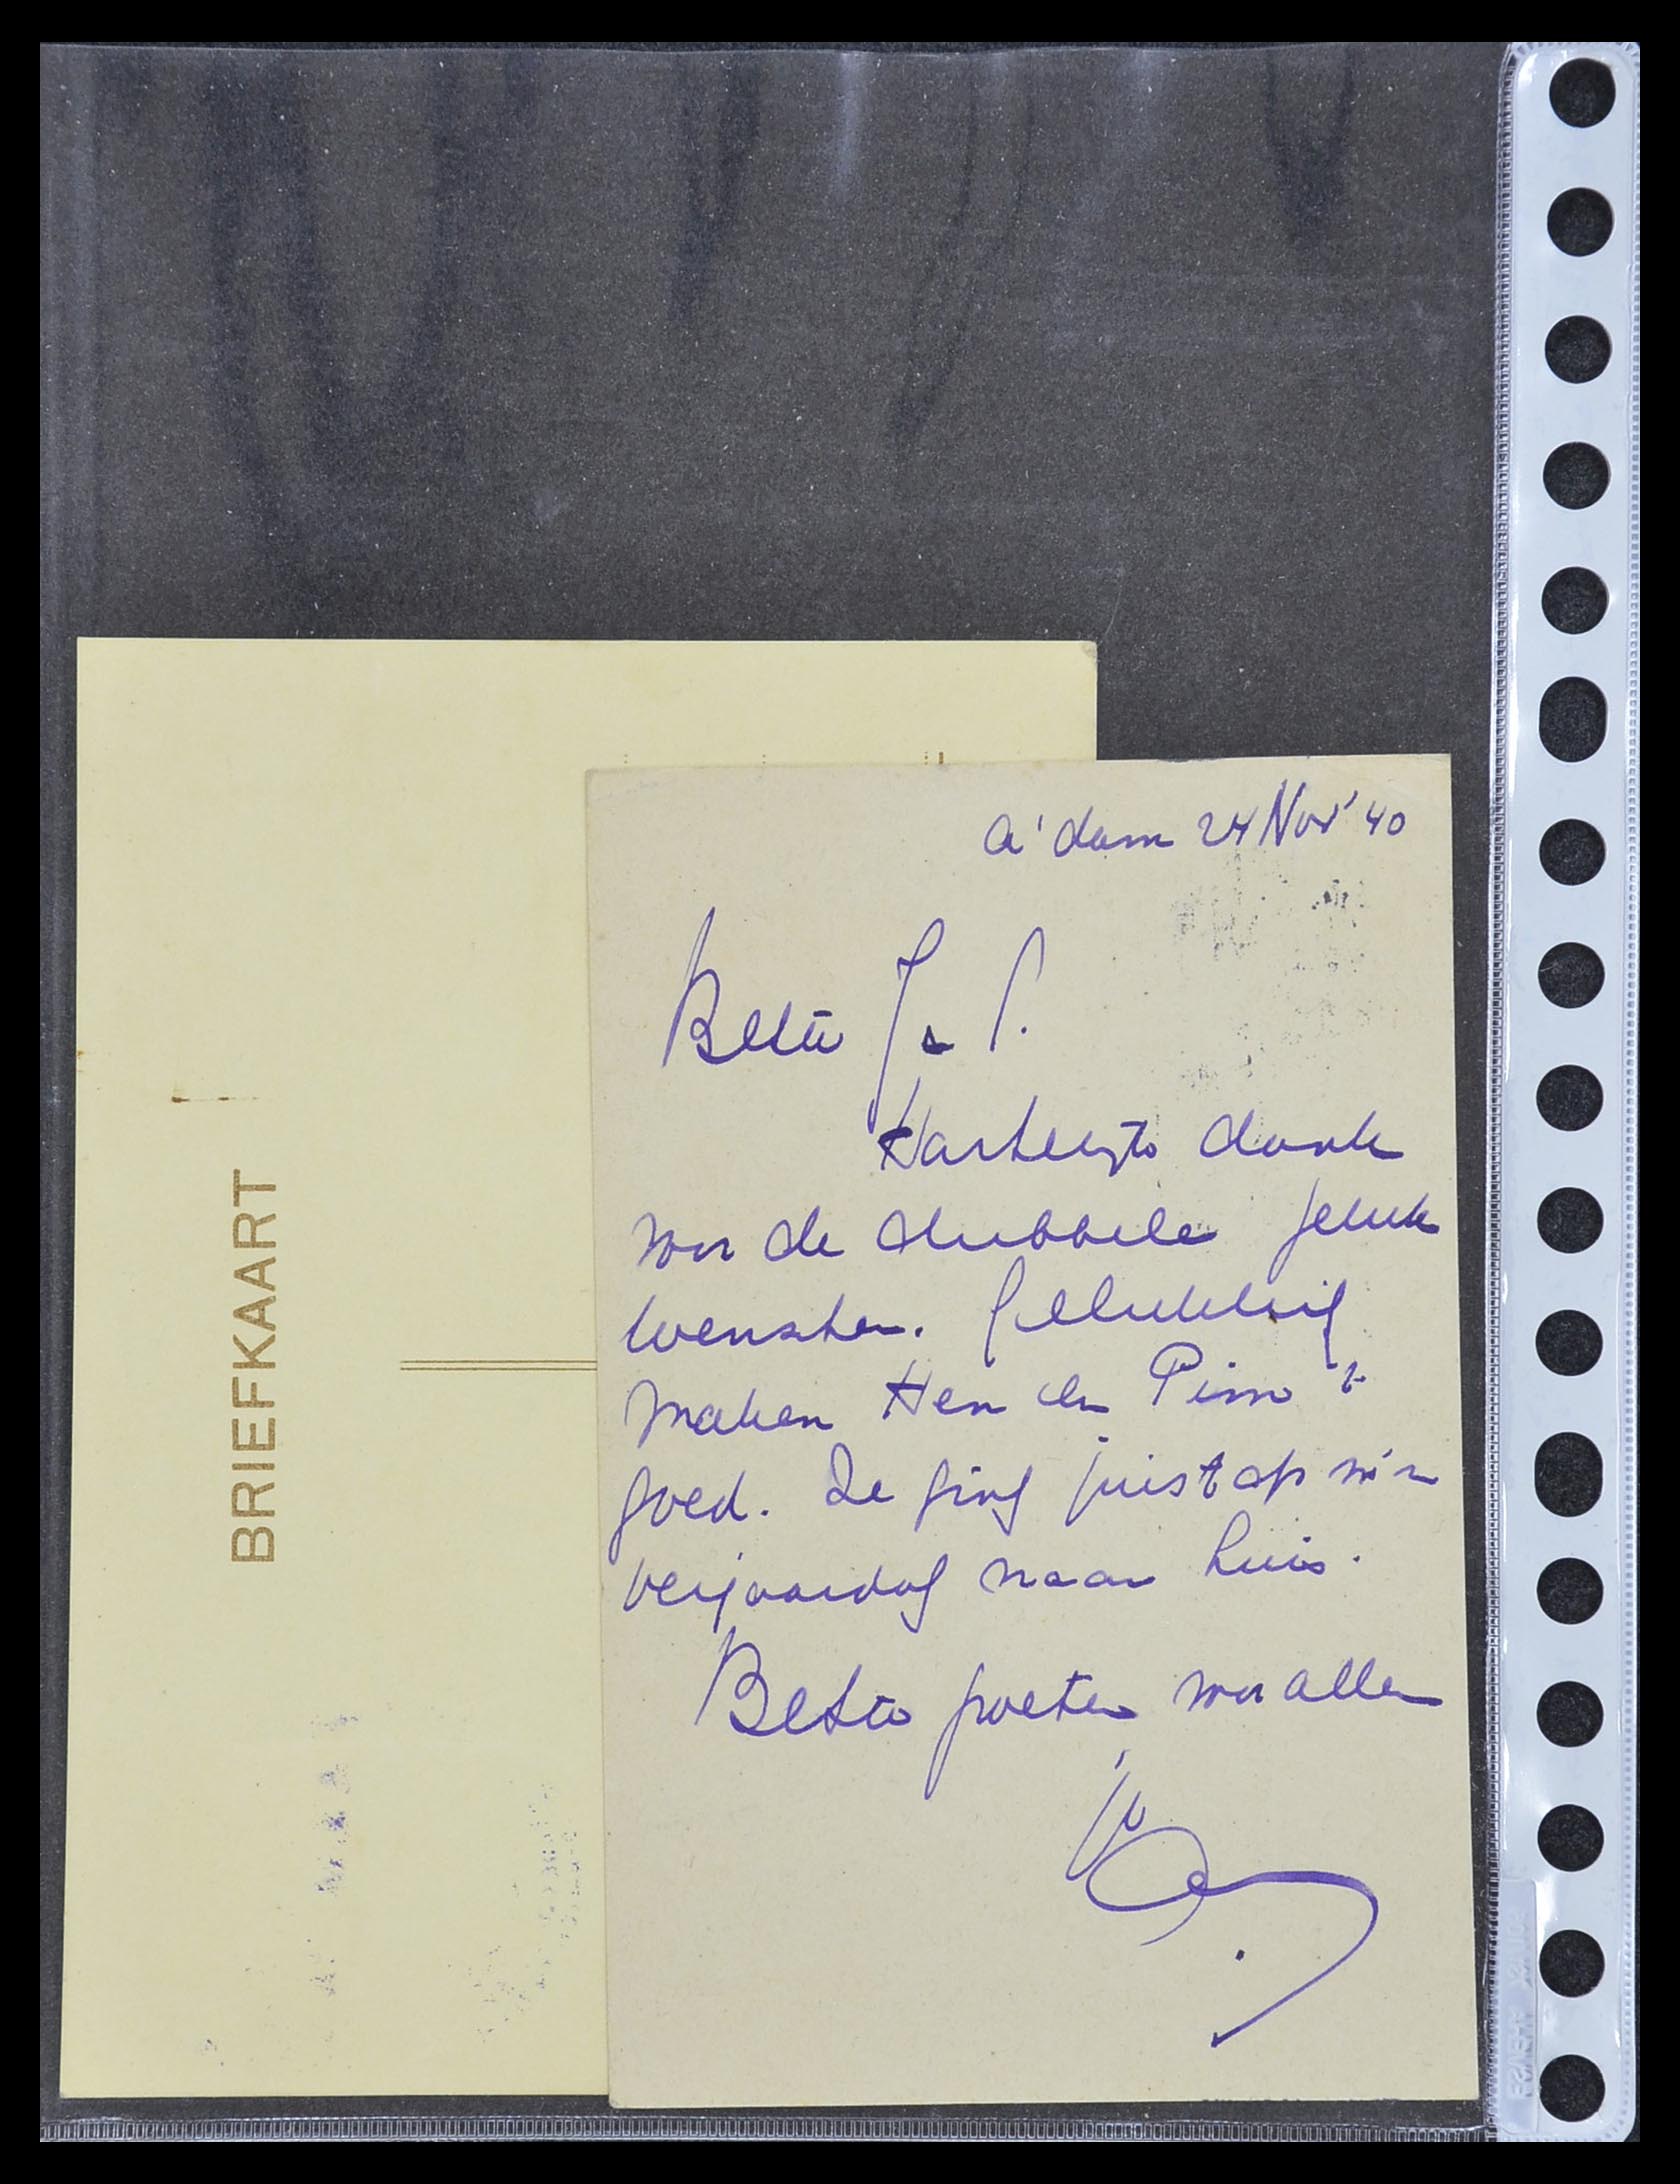 BRIEFKAART
A'dam 24 Nov '40
Beste J. P.
Hartelijke dank
voor de dubbele geluk
wenschen. Gelukkig
maken Hen en Pim 't
goed. Ze ging juist op m'n
verjaardag naar huis.
Beste groeten voor allen